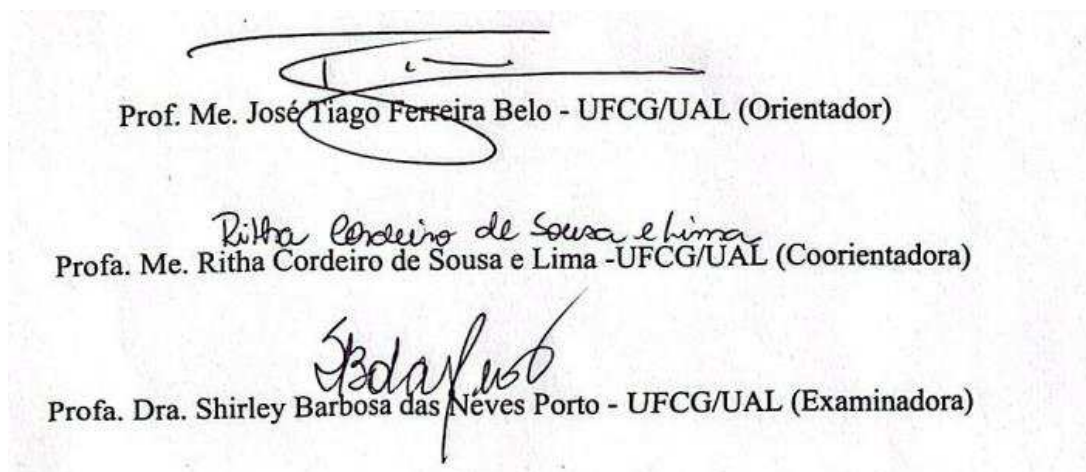 Prof. Me. José Tiago Ferreira Belo - UFCG/UAL (Orientador)
Ritha Cordeiro de Sousa e Lima
Profa. Me. Ritha Cordeiro de Sousa e Lima -UFCG/UAL (Coorientadora)
Profa. Dra. Shirley Barbosa das Neves Porto - UFCG/UAL (Examinadora)